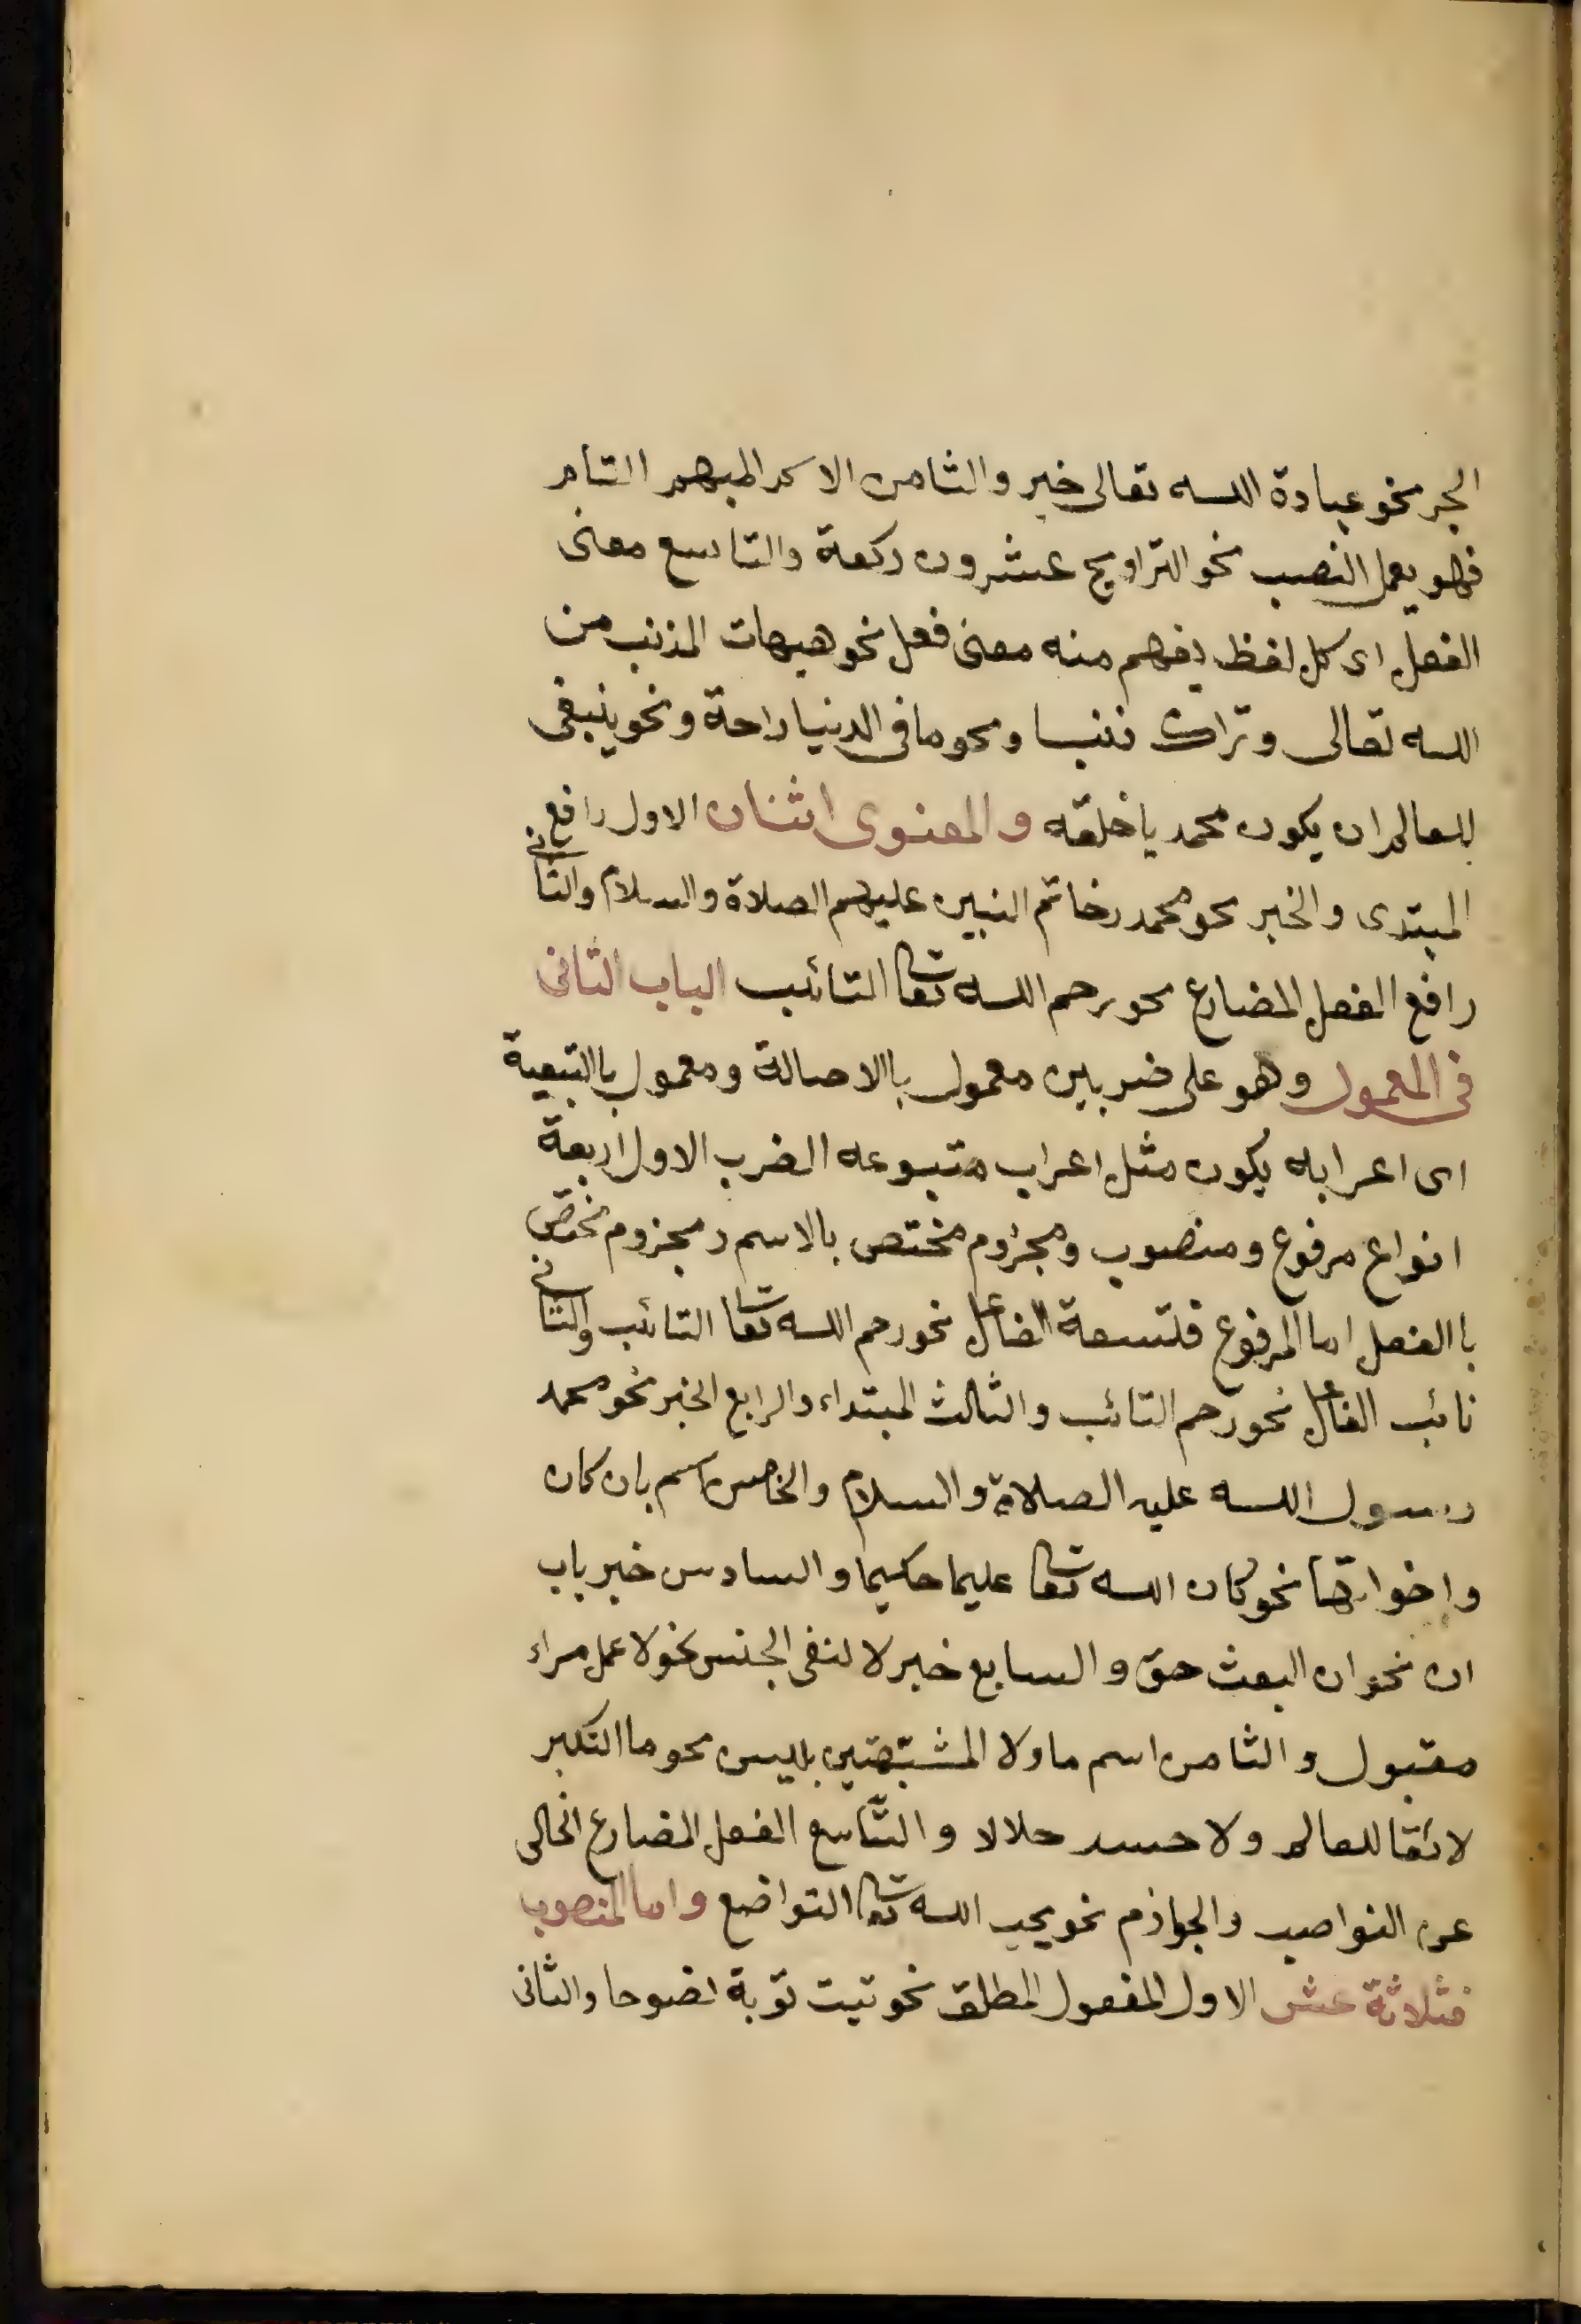 الجر نحو عبادة الله تعالى خير والثامن الاسم المبهم التام
فهو يعمل النصب نحو التراويح عشرون ركعة والتاسع معنى
الفعل اى كل لفظ يفهم منه معنى فعل نحو هيهات المذنب من
الله تعالى وتراك ذنبا ونحو ما فى الدنيا راحة ونحو ينبغى
للعالم ان يكون محمديا خلقه والمعنوى اثنان الاول رافع
المبتدى والخبر نحو محمد خاتم النبين عليهم الصلاة والسلام والثانى
رافع الفعل المضارع نحو يرحم الله تعا التائب الباب الثانى
فى المعمول وهو على ضربين معمول باالاصالة ومعمول باالتبعية
اى اعرابه يكون مثل اعراب متبوعه الضرب الاول اربعة
انواع مرفوع ومنصوب ومجزوم مختص بالاسم ومجزوم مختص
باالفعل اما المرفوع فتسعة الفاعل نحو رحم الله تعا التائب والثانى
نائب الفاعل نحو رحم التائب والثالث المبتداء والرابع الخبر نحو محمد
رسول الله عليه الصلاة والسلام والخامس اسم بان كان
واخواتها نحو كان الله تعا عليما حكيما والسادس خبر باب
ان نحو ان البعث حق والسابع خبر لا لنفى الجنس نحو لا عمل مراء
مقبول والثامن اسم ما ولا المشبهتين بليس نحو ما التكبر
لائقا للعالم ولا حسد حلالا والتاسع الفعل المضارع الخالى
عن النواصب والجوازم نحو يحب الله تعا التواضع واما المنصوب
فثلاثة عشر الاول المفعول المطلق نحو تبت توبة نصوحا والثانى